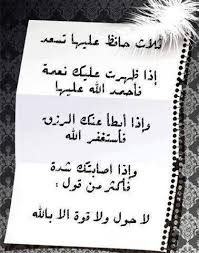 ثلاث حافظ عليها تسعد
إذا ظهرت عليك نعمة
فأحمد الله عليها
وإذا أبطأ عنك الرزق
فأستغفر الله
وإذا اصابتك شدة
فأكثر من قول :
لا حول ولا قوة الا بالله